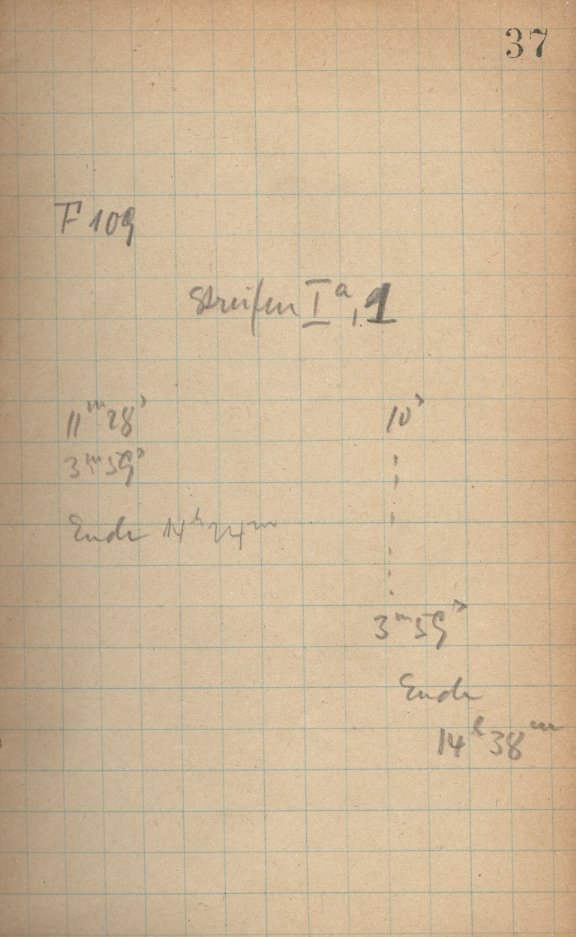 37
F 109
Streifen I a, 1
11 m 28 s
3 m 59 s
Ende 14 h 24 m
10 s
3 m 59 s
Ende
14 h 38 m